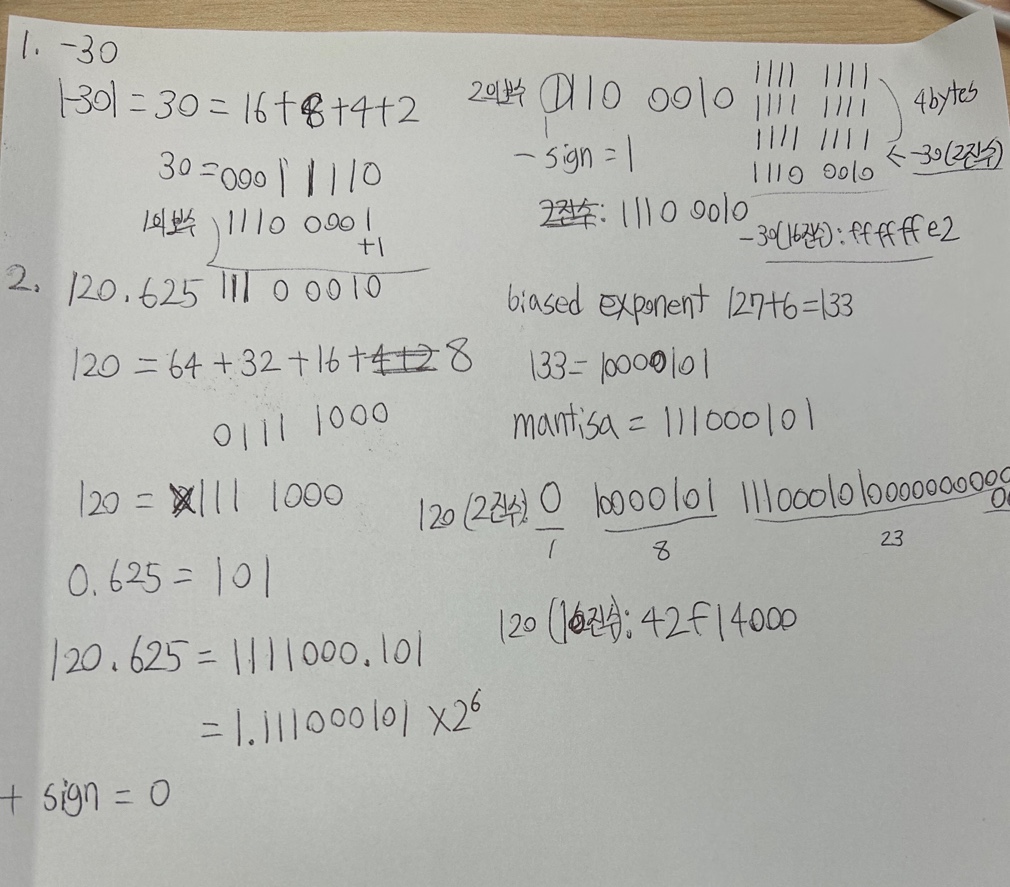 1. -30
|-30| = 30 = 16+8+4+2
30 = 000 1 1110
1의 보수 1110 0001
+1
111 0 0010
2의 보수 1110 0010
- sign = 1
2진수: 1110 0010
1111 1111
1111 1111
1111 1111
1110 0010
4bytes
← -30(2진수)
-30(16진수): ff ff ff e2
2. 120.625
120 = 64 + 32 + 16 + 4+2 8
0111 1000
120 = 111 1000
0.625 = 101
120.625 = 1111000.101
= 1.111000101 × 2^6
+ sign = 0
biased exponent 127+6=133
133 = 10000101
mantisa = 111000101
120 (2진수) 0 10000101 11100010100000000000
00
1 8 23
120 (16진수): 42f14000